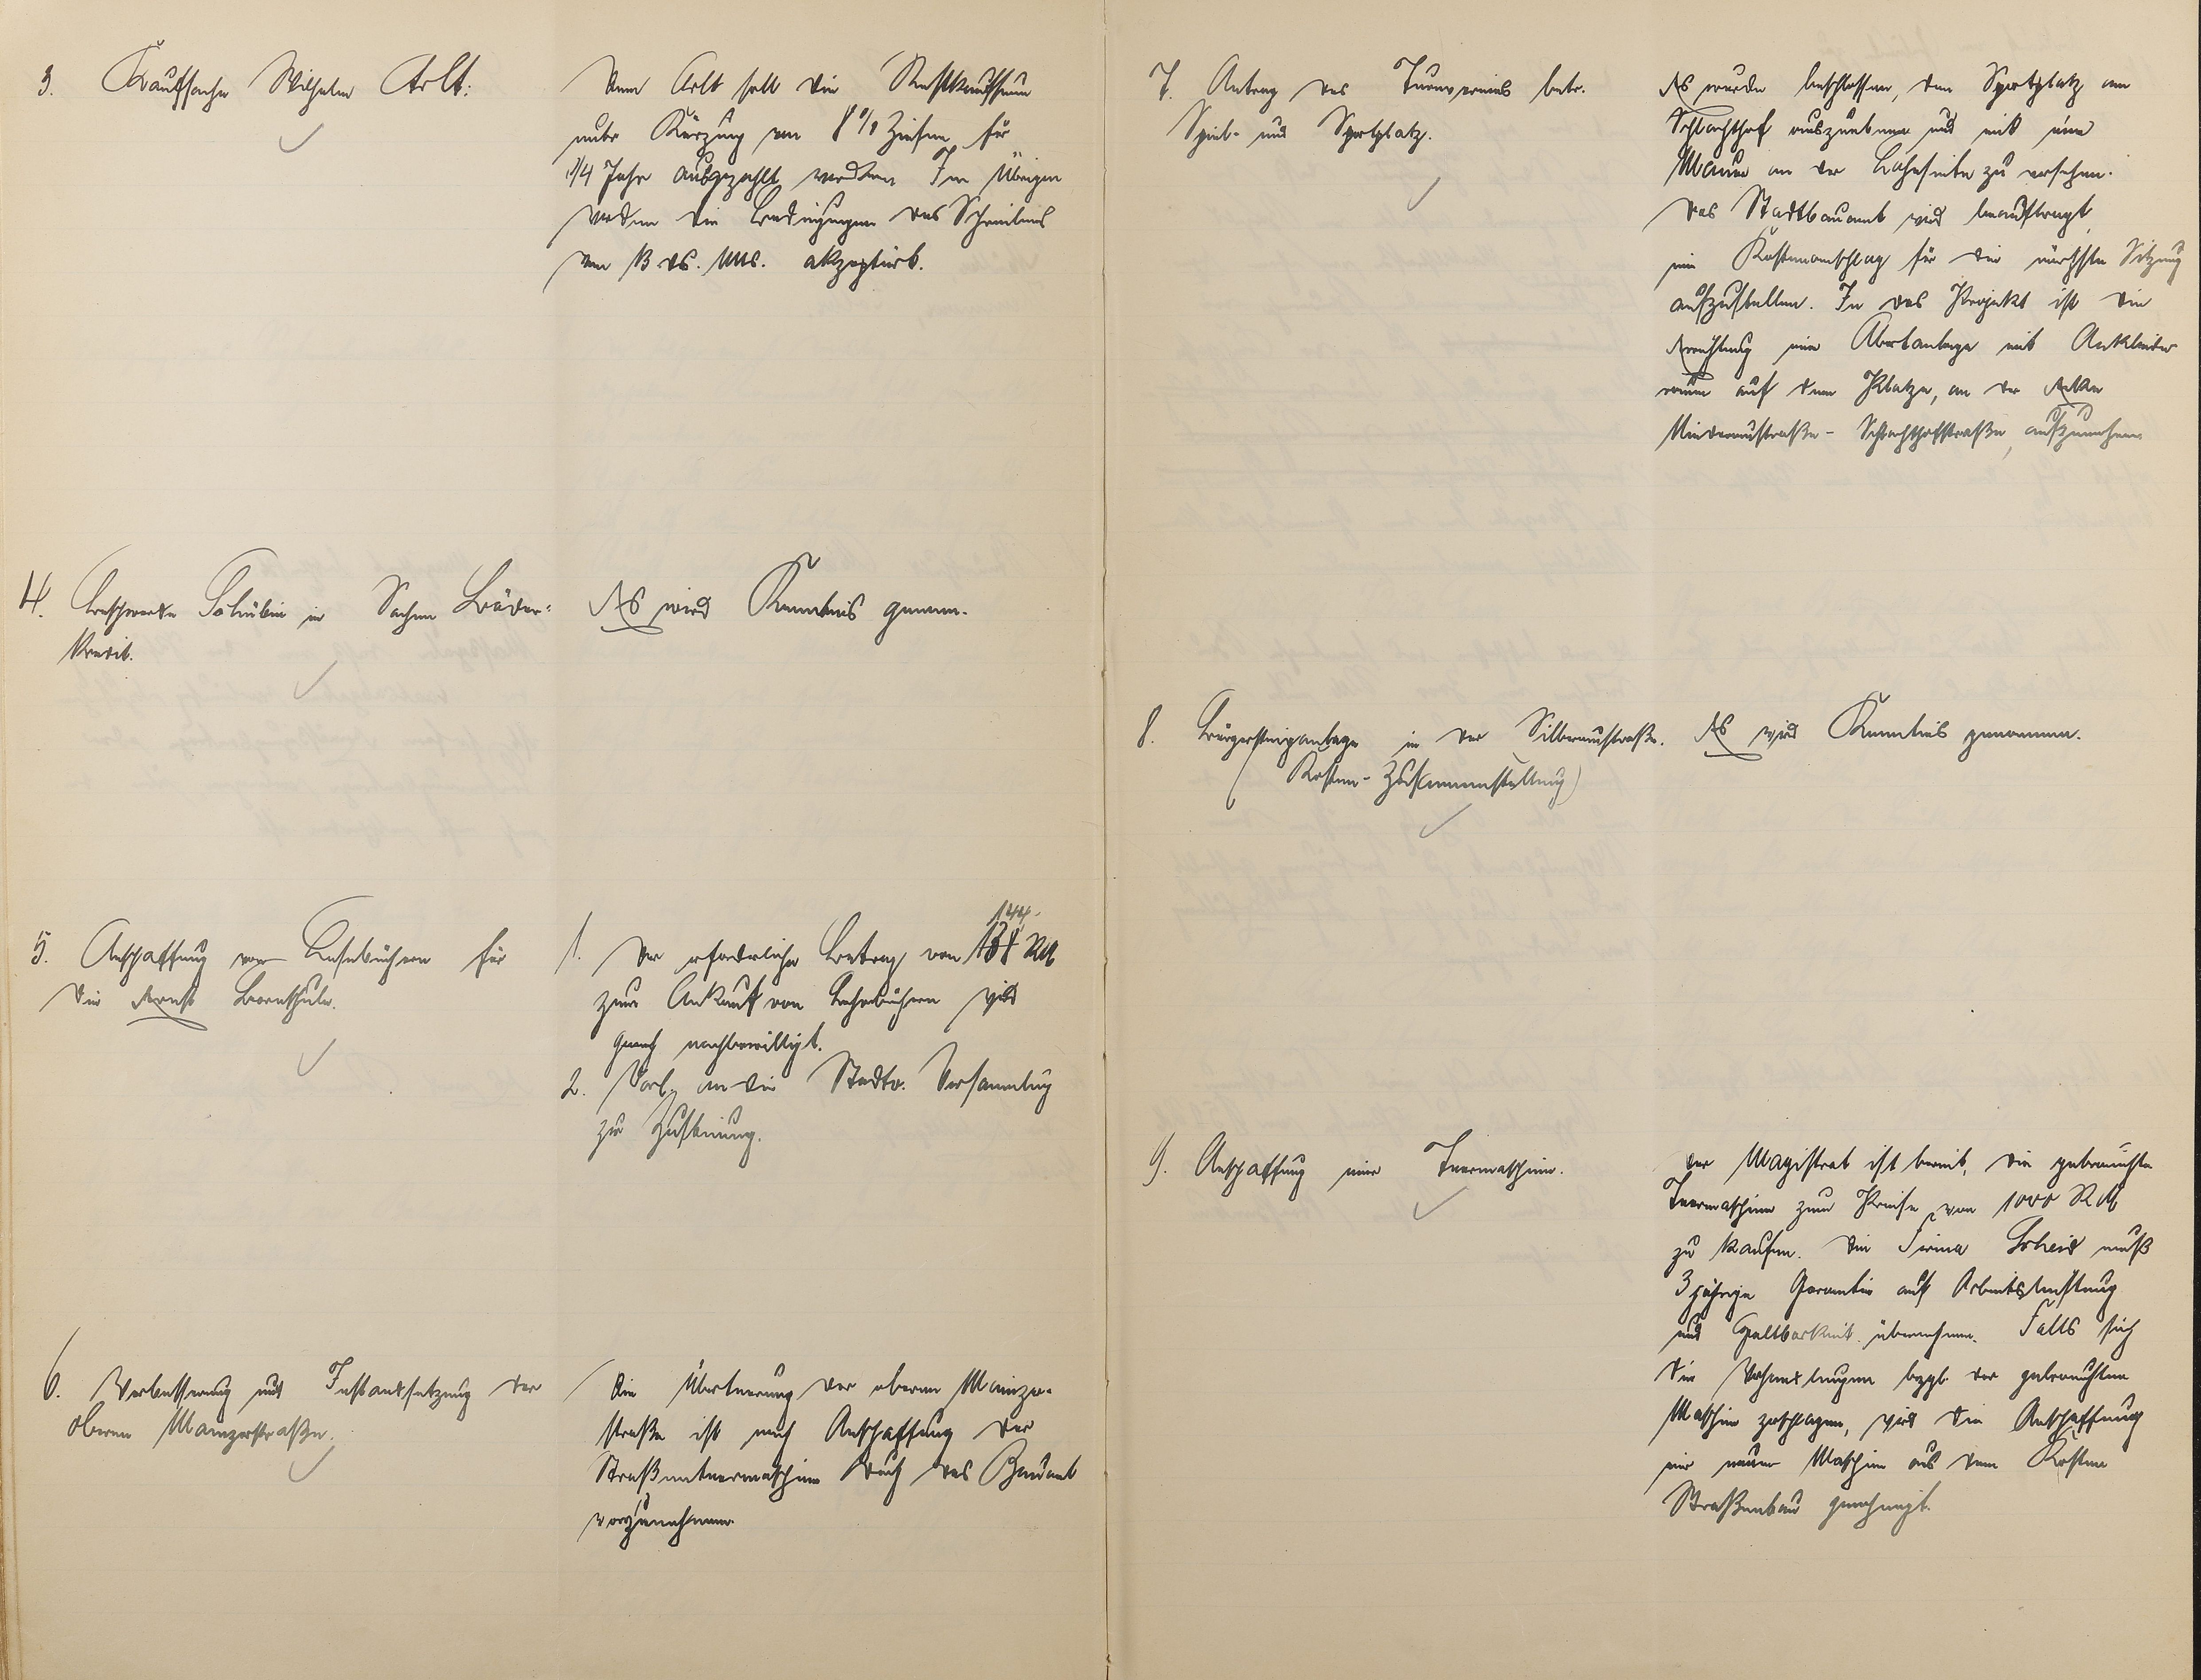 3. Kaufsache Wilhelm Arlt:
Dem Arlt soll die Restkaufsumme
unter Kürzung von 8% Zinsen für
3/4 Jahr ausgezahlt werden Im Übrigen
werden die Bedingungen des Schreibens
vom 13. ds. Mts. akzeptiert.
4. Beschwerde in Sachen Bäder-
kredit.
Es wird Kenntnis genomm.
5. Anschaffung von Lesebüchern für
die Ernst Bornschule.
1. Der erforderliche Betrag von 144.- RM
zum Ankauf von Lehrbüchern wird
nachbewilligt.
2. Vorl. an die Stadtv. Versammlung
zur Zustimmung.
6. Verbesserung und Instandsetzung der
oberen Mainzerstraße.
Die Überteerung der oberen Mainzer-
straße ist nach Anschaffung der
Straßenteermaschine durch das Bauamt
vorzunehmen.
7. Antrag des Turnvereins betr.
Spiel- und Sportplatz.
Es wurde beschlossen, den Sportplatz am
Schlachthof auszuebnen und mit einer
Mauer an der Lahnseite zu versehen.
Das Stadtbauamt wird beauftragt,
ein Kostenanschlag für die nächste Sitzung
aufzustellen. In das Projekt ist die
Errichtung einer Abortanlage mit Ankleide-
raum auf dem Platze, an der Ecke
Niederaustraße - Schlachthofstraße, aufzunehmen
8. Bürgersteiganlage in der Silberaustraße.
(Kosten-Zusammenstellung)
Es wird Kenntnis genommen.
9. Anschaffung einer Teermaschine.
Der Magistrat ist bereit, die gebrauchte
Teermaschine zum Preise von 1000 RM
zu kaufen. Die Firma Scheid muß
3 jährige Garantie auf Arbeitsleistung
und Haltbarkeit übernehmen. Falls sich
die Verhandlungen bzgl. der gebrauchten
Maschine zerschlagen, wird die Anschaffung
einer neuen Maschine aus dem Kosten
Straßenbau genehmigt.